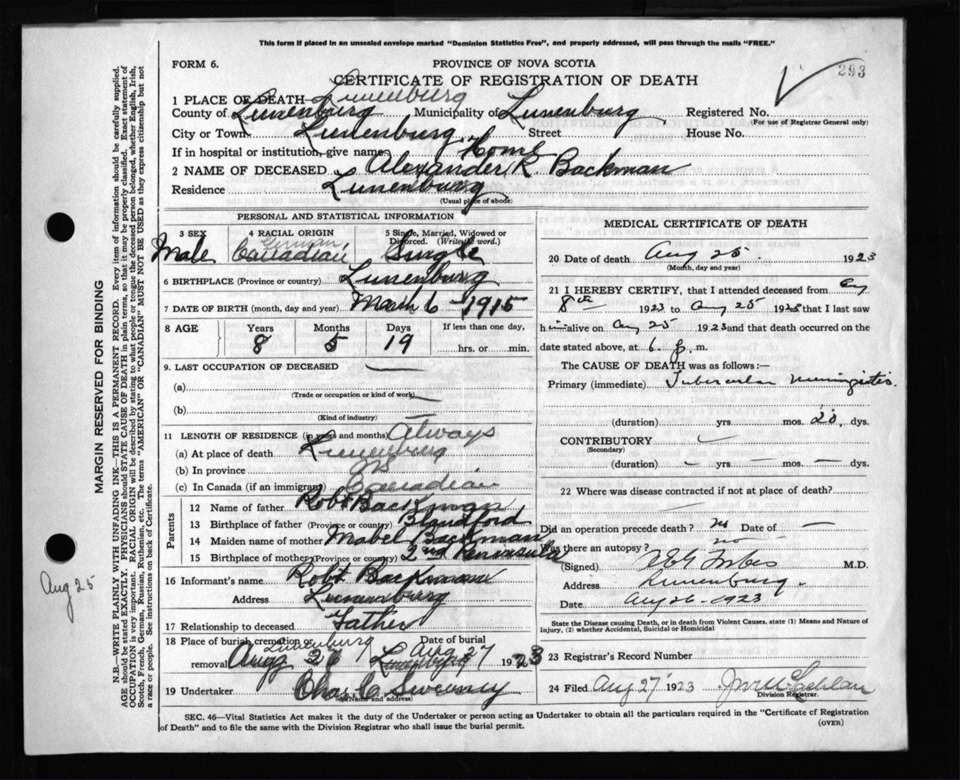 This form if placed in an unsealed envelope marked "Dominion Statistics Free", and properly addressed, will pass through the mails "FREE."
FORM 6.
PROVINCE OF NOVA SCOTIA
293
CERTIFICATE OF REGISTRATION OF DEATH
1 PLACE OF DEATH Lunenburg
County of Lunenburg Municipality of Lunenburg Registered No.
(For use of Registrar General only)
City or Town Lunenburg Street House No.
If in hospital or institution, give name Home
2 NAME OF DECEASED Alexander R. Backman
Residence Lunenburg
(Usual place of abode)
PERSONAL AND STATISTICAL INFORMATION
3 SEX Male
4 RACIAL ORIGIN German Canadian
5 Single, Married, Widowed or Divorced. (Write the word.) Single
6 BIRTHPLACE (Province or country) Lunenburg
7 DATE OF BIRTH (month, day and year) March 6 - 1915
8 AGE Years 8 Months 5 Days 19 If less than one day, hrs. or min.
9. LAST OCCUPATION OF DECEASED —
(a)
(Trade or occupation or kind of work)
(b)
(Kind of industry)
11 LENGTH OF RESIDENCE (in years and months) Always
(a) At place of death Lunenburg
(b) In province
(c) In Canada (if an immigrant) Canadian
Parents
12 Name of father Robt Backman
13 Birthplace of father (Province or country) Blandford
14 Maiden name of mother Mabel Backman
15 Birthplace of mother (Province or country) 2nd Peninsula
16 Informant's name Robt Backman
Address Lunenburg
17 Relationship to deceased Father
18 Place of burial, cremation or removal Lunenburg Date of burial Aug 27 1923
Aug 26 Lunenburg
19 Undertaker Chas C Sweeney
(Name and address)
MEDICAL CERTIFICATE OF DEATH
20 Date of death Aug 25. 1923
(Month, day and year)
21 I HEREBY CERTIFY, that I attended deceased from Aug
8th 1923 to Aug 25 1923 that I last saw
him alive on Aug 25 1923 and that death occurred on the
date stated above, at 6 p. m.
The CAUSE OF DEATH was as follows:—
Primary (immediate) Tubercular Meningitis.
(duration) yrs. mos. 20, dys.
CONTRIBUTORY
(Secondary)
(duration) — yrs — mos. — dys.
22 Where was disease contracted if not at place of death?
Did an operation precede death? no Date of —
Was there an autopsy? no
(Signed) M.D.
Address Lunenburg.
Date Aug 26-1923
State the Disease causing Death, or in death from Violent Causes, state (1) Means and Nature of Injury, (2) whether Accidental, Suicidal or Homicidal
23 Registrar's Record Number
24 Filed Aug 27 1923
Division Registrar.
SEC. 46—Vital Statistics Act makes it the duty of the Undertaker or person acting as Undertaker to obtain all the particulars required in the "Certificate of Registration of Death" and to file the same with the Division Registrar who shall issue the burial permit.
(OVER)
MARGIN RESERVED FOR BINDING
N.B.—WRITE PLAINLY WITH UNFADING INK—THIS IS A PERMANENT RECORD. Every item of information should be carefully supplied.
AGE should be stated EXACTLY. PHYSICIANS should STATE CAUSE OF DEATH in plain terms, so that it may be properly classified. Exact statement of
OCCUPATION is very important. RACIAL ORIGIN will be described by stating to what people or tongue the deceased person belonged, whether English, Irish,
Scotch, French, German, Russian, Ruthenian, etc. The terms "AMERICAN" OR "CANADIAN" MUST NOT BE USED as they express citizenship but not
a race or people. See instructions on back of Certificate.
Aug 25